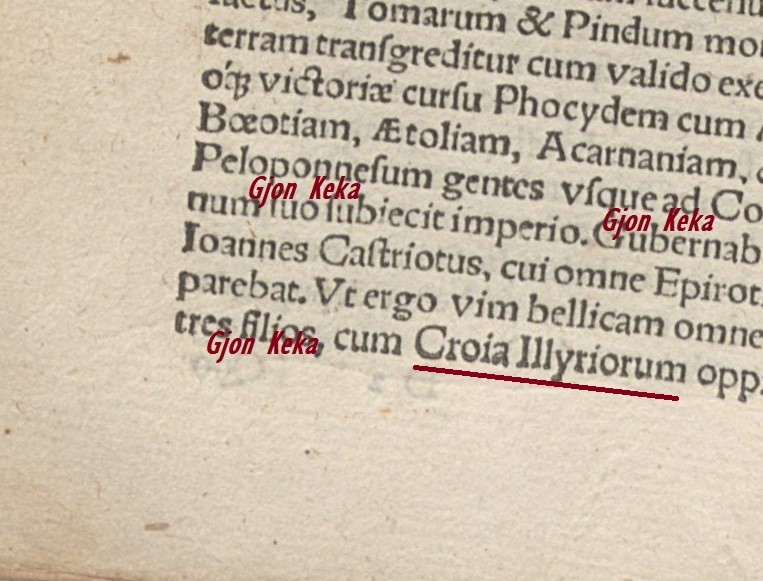 Tomarum & Pindum
terram tranſgreditur cum valido
victoriæ curſu Phocydem cum
Bœotiam, Ætoliam, Acarnaniam,
Peloponneſum gentes vſque ad
Gjon Keka
Gjon Keka
num ſuo ſubiecit imperio. Gubernab
Ioannes Caſtriotus, cui omne Epirot
parebat. Vt ergo vim bellicam omne
tres filios, cum Croia Illyriorum opp
Gjon Keka